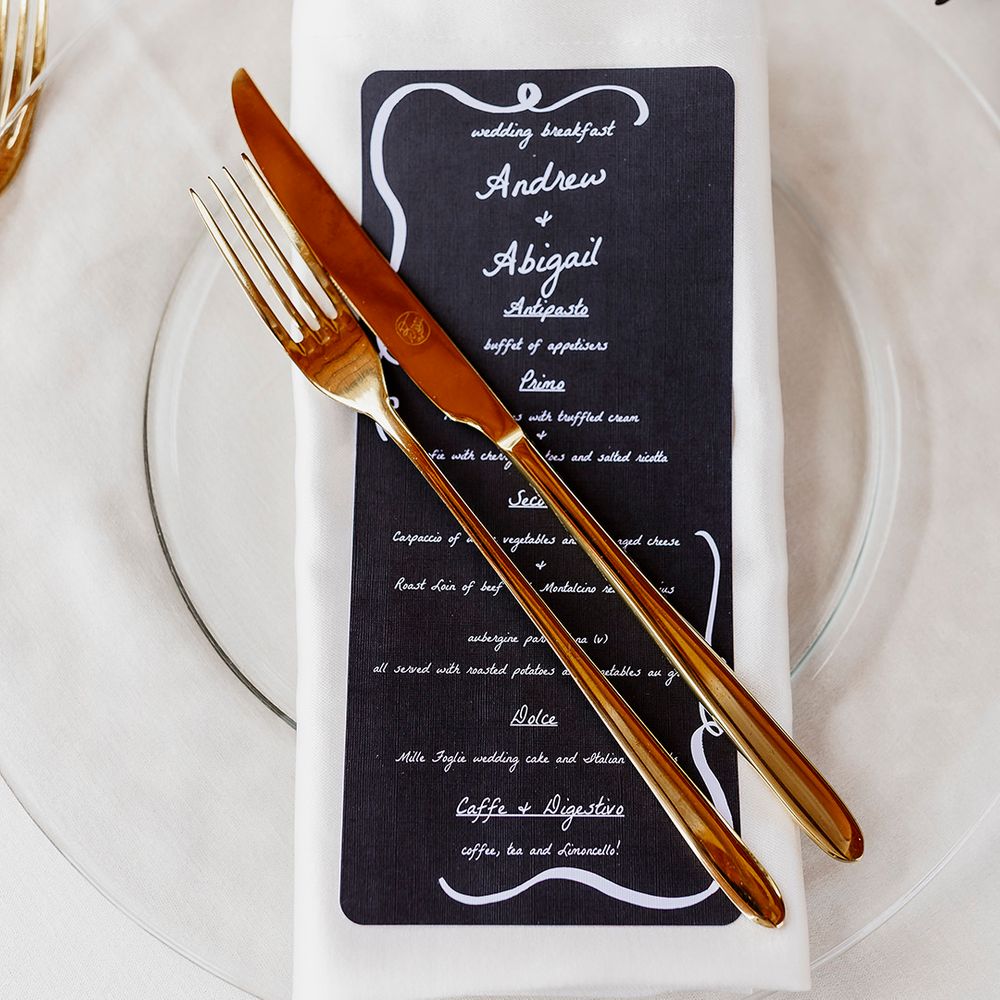 wedding breakfast
Andrew
&
Abigail
Antipasto
buffet of appetisers
Primo
with truffled cream
&
with and salted ricotta
Carpaccio of vegetables cheese
&
Roast Loin of beef Montalcino
aubergine (v)
all served with roasted potatoes au
Dolce
Mille Foglie wedding cake and Italian
Caffe & Digestivo
coffee, tea and Limoncello!